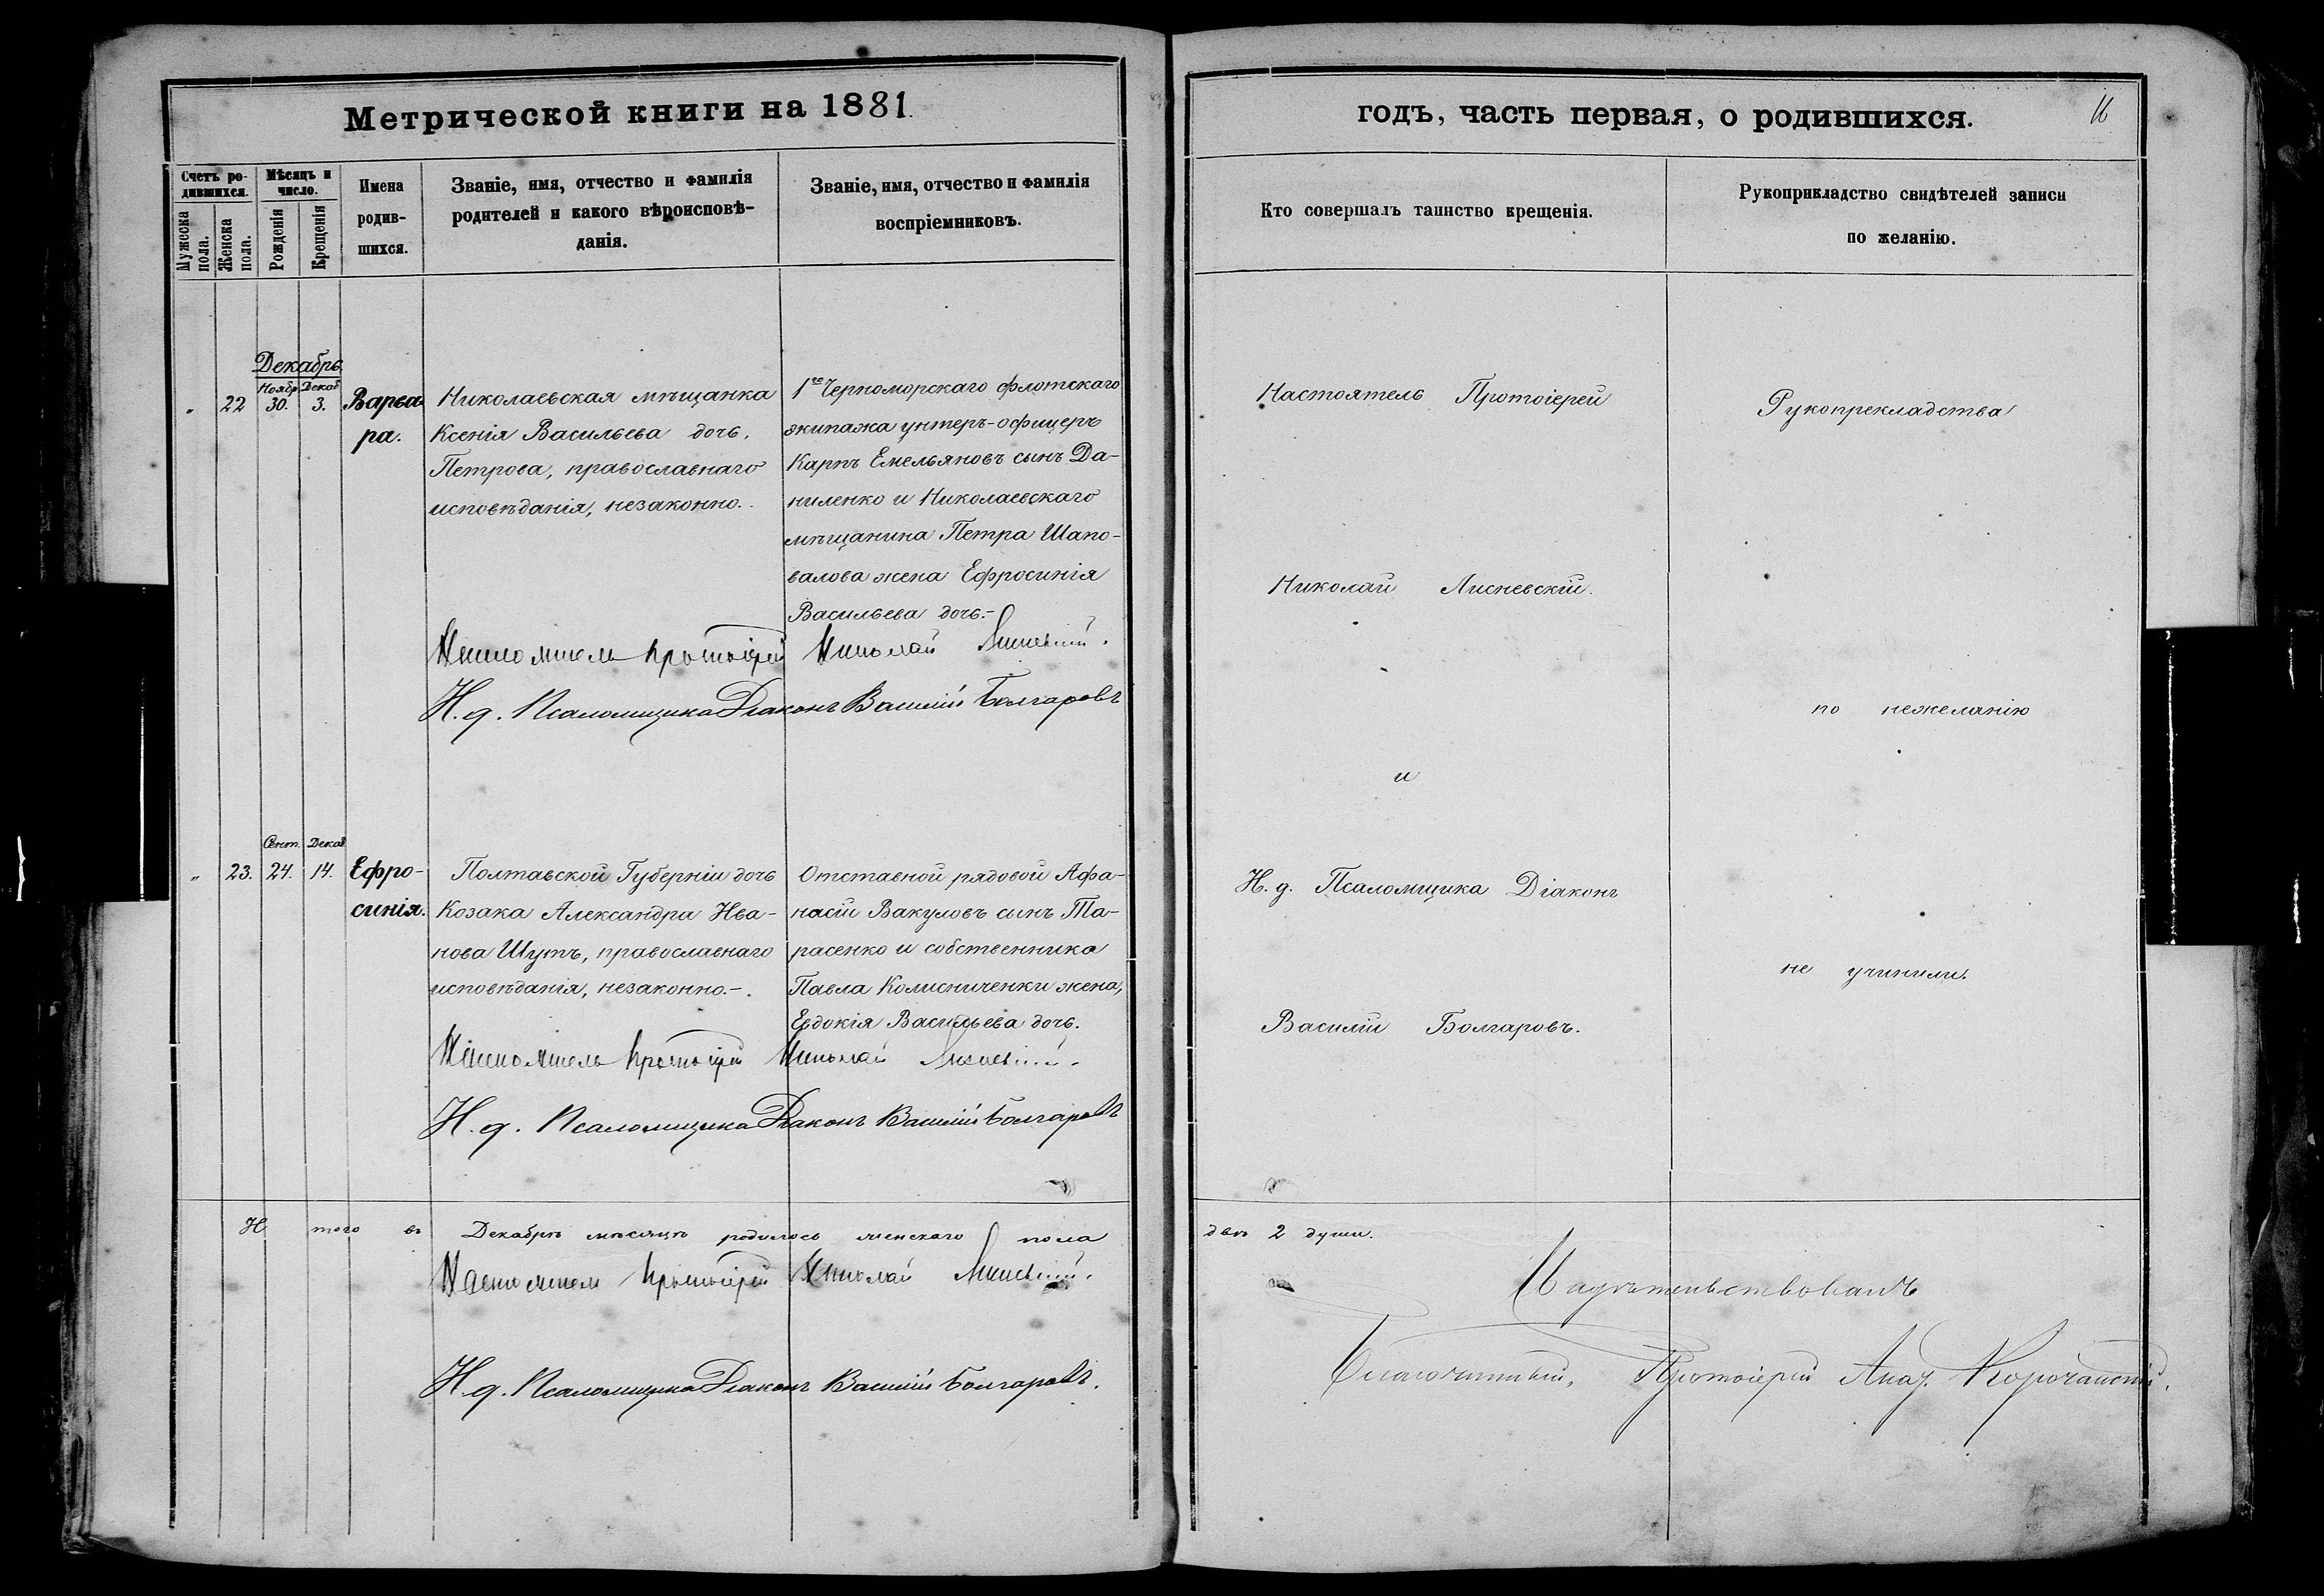 Метрической книги на 1881.
Счетъ ро-
дившихся.
Мужеска
пола.
Женска
пола.
Мѣсяцъ и
число.
Рожденія
Крещенія
Имена
родив-
шихся.
Званіе, имя, отчество и фамилія
родителей и какого вѣроисповѣ-
данія.
Званіе, имя, отчество и фамилія
воспріемниковъ.
Декабрь
Ноябр. Декаб.
" 22 30. 3.
Варва-
ра.
Николаевская мѣщанка
Ксенія Васильева дочь,
Петрова, православнаго
исповѣданія, незаконно.
1го Черноморскаго флотскаго
экипажа унтеръ-офицеръ
Карпъ Емельяновъ сынъ Да-
ниленко и Николаевскаго
мѣщанина Петра Шапо-
валова жена Ефросинія
Васильева дочь.-
Настоятель Протоіерей Николай Лисневскій.
И. д. Псаломщика Діаконъ Василій Болгаровъ
Сент. Декаб.
" 23. 24. 14.
Ефро-
синія.
Полтавской Губерніи дочь
Козака Александра Ива-
нова Шутъ, православнаго
исповѣданія, незаконно.-.
Отставной рядовой Афа-
насій Вакуловъ сынъ Та-
расенко и собственника
Павла Колисниченки жена,
Евдокія Васильева дочь.
Настоятель Протоіерей Николай Лисневскій.
И. д. Псаломщика Діаконъ Василій Болгаровъ
И того въ Декабрѣ мѣсяцѣ родилось женскаго пола
Настоятель Протоіерей Николай Лисневскій.
И. д. Псаломщика Діаконъ Василій Болгаровъ.
годъ, часть первая, о родившихся.
Кто совершалъ таинство крещенія.
Рукоприкладство свидѣтелей записи
по желанію.
Настоятель Протоіерей
Николай Лисневскій.
и
И. д. Псаломщика Діаконъ
Василій Болгаровъ.
Рукопрекладства
по нежеланію
не учинили.
двѣ 2 души.
Свидѣтельствовалъ
Благочинный, Протоіерей Корочанскій.